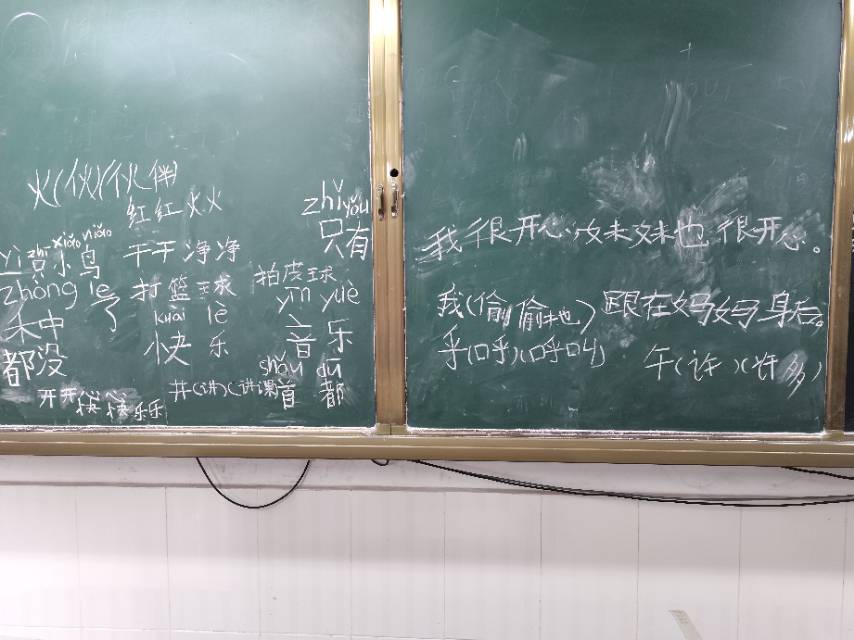 火(伙)(伙伴)
红红火火
zhǐ yǒu
只有
yì zhī xiǎo niǎo
一只小鸟
干干净净
zhòng le
禾中 了
打篮球
拍皮球
kuài lè
快乐
yīn yuè
音乐
都没
shǒu dū
首都
开开快快乐乐
井(讲)(讲课)
我很开心，妹妹也很开心。
我(偷偷地)跟在妈妈身后。
乎(呼)(呼叫)
午(许)(许多)